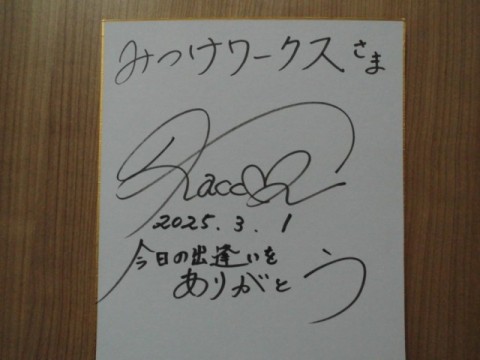 みつけワークスさま
2025.3.1
今日の出逢いを
ありがとう